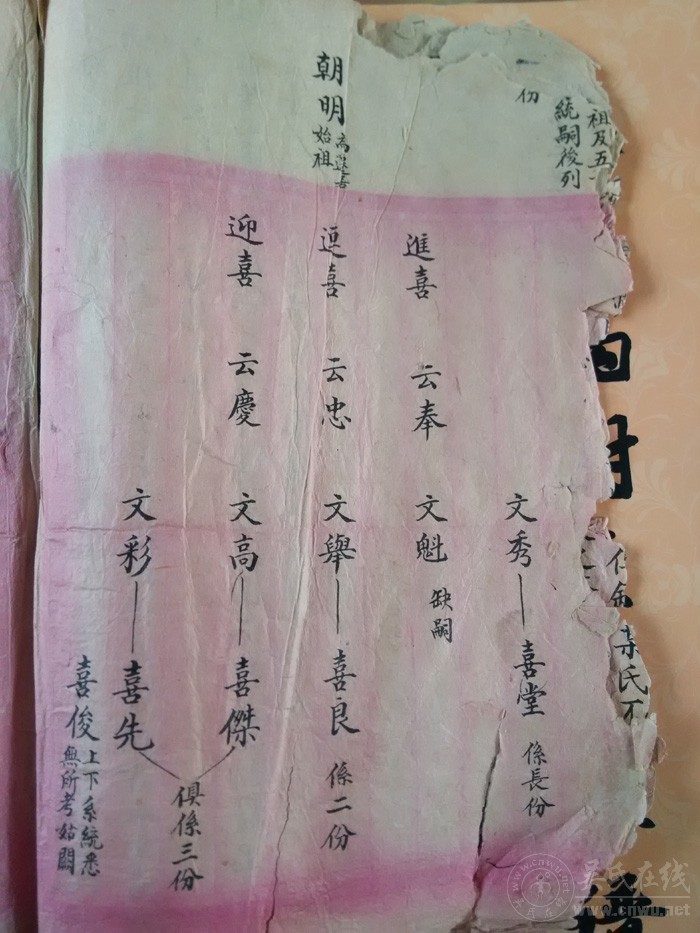 祖及五
統嗣後列
份
朝明
始祖
進喜 云奉 文魁 缺嗣
文秀 喜堂 係長份
逞喜 云忠 文舉 喜良 係二份
迎喜 云慶 文高 喜傑
文彩 喜先
俱係三份
喜俊 上下系統悉
無所考姑闕
吴氏在线
www.cnwu.net